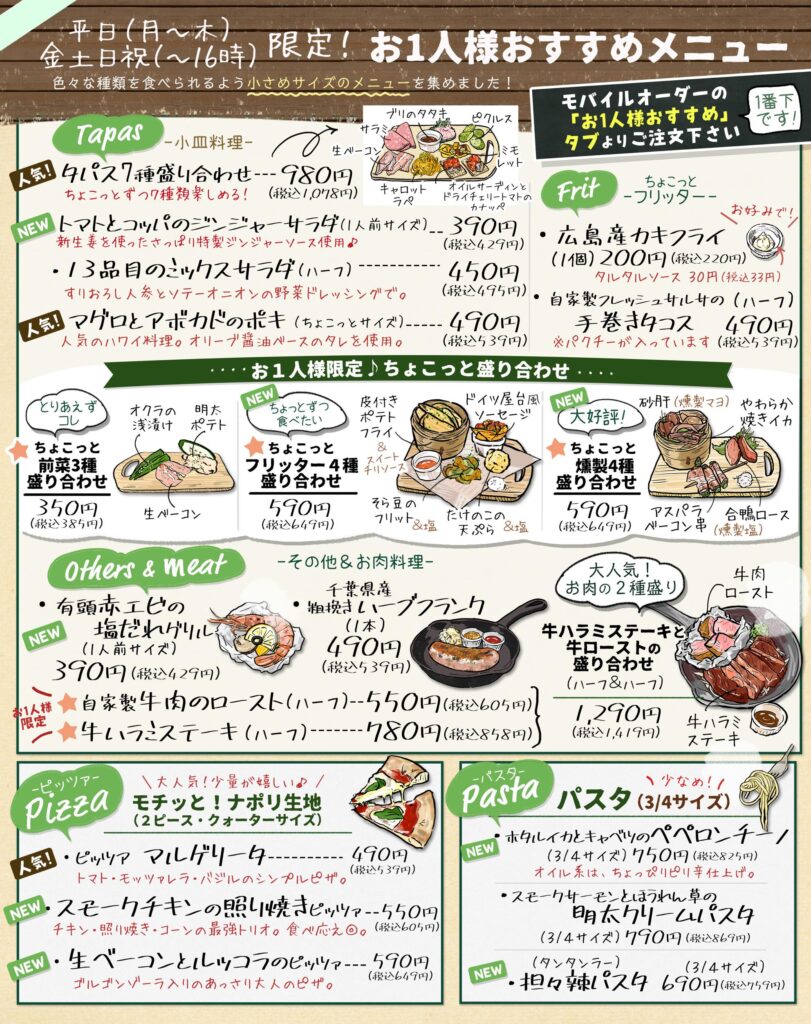 平日(月〜木)
金土日祝(〜16時)
限定!
お1人様おすすめメニュー
色々な種類を食べられるよう小さめサイズのメニューを集めました!
モバイルオーダーの
「お1人様おすすめ」
タブよりご注文下さい
1番下
です!
Tapas
-小皿料理-
人気!
タパス7種盛り合わせ---980円
(税込1,078円)
ちょこっとずつ7種類楽しめる!
ブリのタタキ
サラミ
ピクルス
生ベーコン
ミモ
レット
キャロット
ラペ
オイルサーディンと
ドライチェリートマトの
カナッペ
NEW
トマトとコッパのジンジャーサラダ(1人前サイズ)--390円
(税込429円)
新生姜を使ったさっぱり特製ジンジャーソース使用♪
・13品目のミックスサラダ(ハーフ)------450円
(税込495円)
すりおろし人参とソテーオニオンの野菜ドレッシングで。
人気!
マグロとアボカドのポキ(ちょこっとサイズ)------490円
(税込539円)
人気のハワイ料理。オリーブ醤油ベースのタレを使用。
Frit
ちょこっと
-フリッター-
お好みで!
・広島産カキフライ
(1個)200円(税込220円)
タルタルソース 30円(税込33円)
・自家製フレッシュサルサの(ハーフ)
手巻きタコス 490円
※パクチーが入っています(税込539円)
····お1人様限定♪ちょこっと盛り合わせ····
とりあえず
コレ
ちょこっと
前菜3種
盛り合わせ
350円
(税込385円)
オクラの
浅漬け
明太
ポテト
生ベーコン
NEW
ちょっとずつ
食べたい
ちょこっと
フリッター4種
盛り合わせ
590円
(税込649円)
皮付き
ポテト
フライ
&スイート
チリソース
ドイツ屋台風
ソーセージ
そら豆の
フリット&塩
たけのこの
天ぷら &塩
NEW
大好評!
ちょこっと
燻製4種
盛り合わせ
590円
(税込649円)
砂肝(燻製マヨ)
やわらか
焼きイカ
アスパラ
ベーコン串
合鴨ロース
(燻製塩)
Others & meat
-その他&お肉料理-
NEW
・有頭赤エビの
塩だれグリル
(1人前サイズ)
390円(税込429円)
・千葉県産
粗挽きハーブフランク
(1本)
490円
(税込539円)
お1人様
限定
自家製牛肉のロースト(ハーフ)--550円(税込605円)
牛ハラミステーキ(ハーフ)------780円(税込858円)
大人気!
お肉の2種盛り
牛ハラミステーキと
牛ローストの
盛り合わせ
(ハーフ&ハーフ)
1,290円
(税込1,419円)
牛肉
ロースト
牛ハラミ
ステーキ
-ピッツァ-
Pizza
\大人気!少量が嬉しい♪/
モチッと!ナポリ生地
(2ピース・クォーターサイズ)
人気!
・ピッツァ マルゲリータ----------490円
(税込539円)
トマト・モッツァレラ・バジルのシンプルピザ。
NEW
・スモークチキンの照り焼きピッツァ--550円
(税込605円)
チキン・照り焼き・コーンの最強トリオ。食べ応え◎。
NEW
・生ベーコンとルッコラのピッツァ---590円
(税込649円)
ゴルゴンゾーラ入りのあっさり大人のピザ。
-パスタ-
Pasta
\少なめ!/
パスタ(3/4サイズ)
NEW
・ホタルイカとキャベツのペペロンチーノ
(3/4サイズ)750円(税込825円)
オイル系は、ちょっぴりピリ辛仕上げ。
・スモークサーモンとほうれん草の
明太クリームパスタ
(3/4サイズ)790円(税込869円)
NEW
(タンタンラー)
(3/4サイズ)
・担々辣パスタ 690円(税込759円)